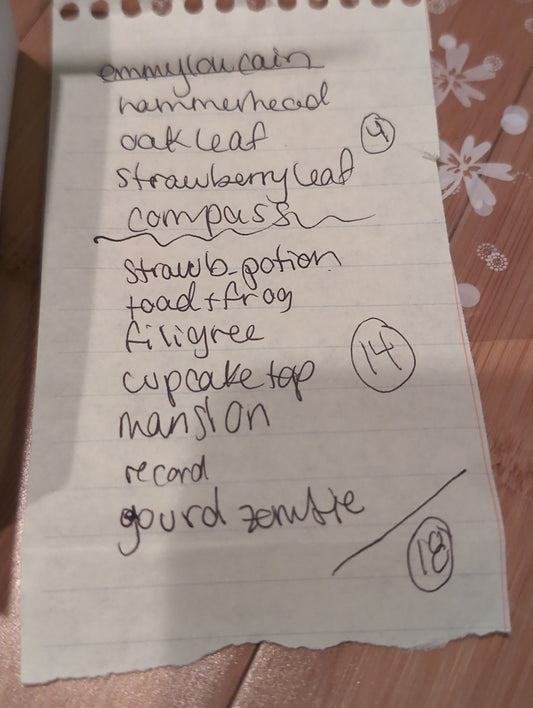 emmylou cain
hammerhead
oak leaf
4
strawberry leaf
compass
strawb-potion
toad + frog
filigree
14
cupcake top
mansion
record
gourd zombie
18